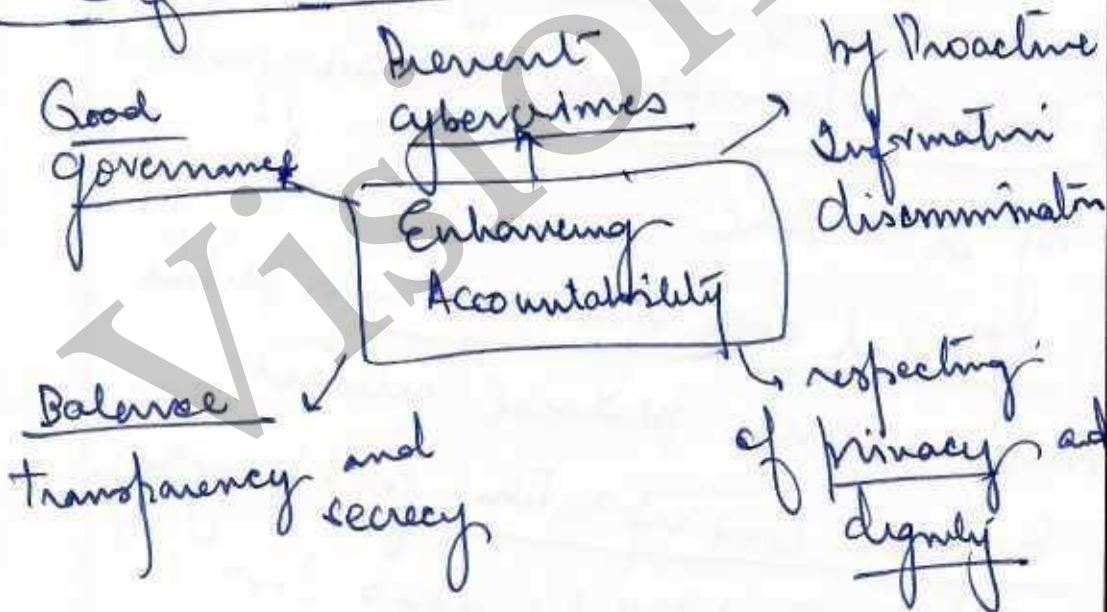 Good
governance
Prevent
cybercrimes
by Proactive
Information
discemminatn
Enhancing
Accountability
Balance
transparency and
secrecy
respecting
of privacy and
dignity
Vision